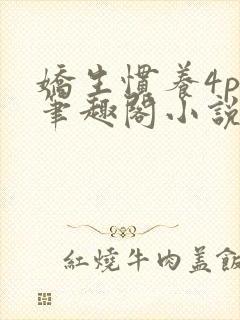 嬌生慣養4p
筆趣閣小說
紅燒牛肉蓋飯